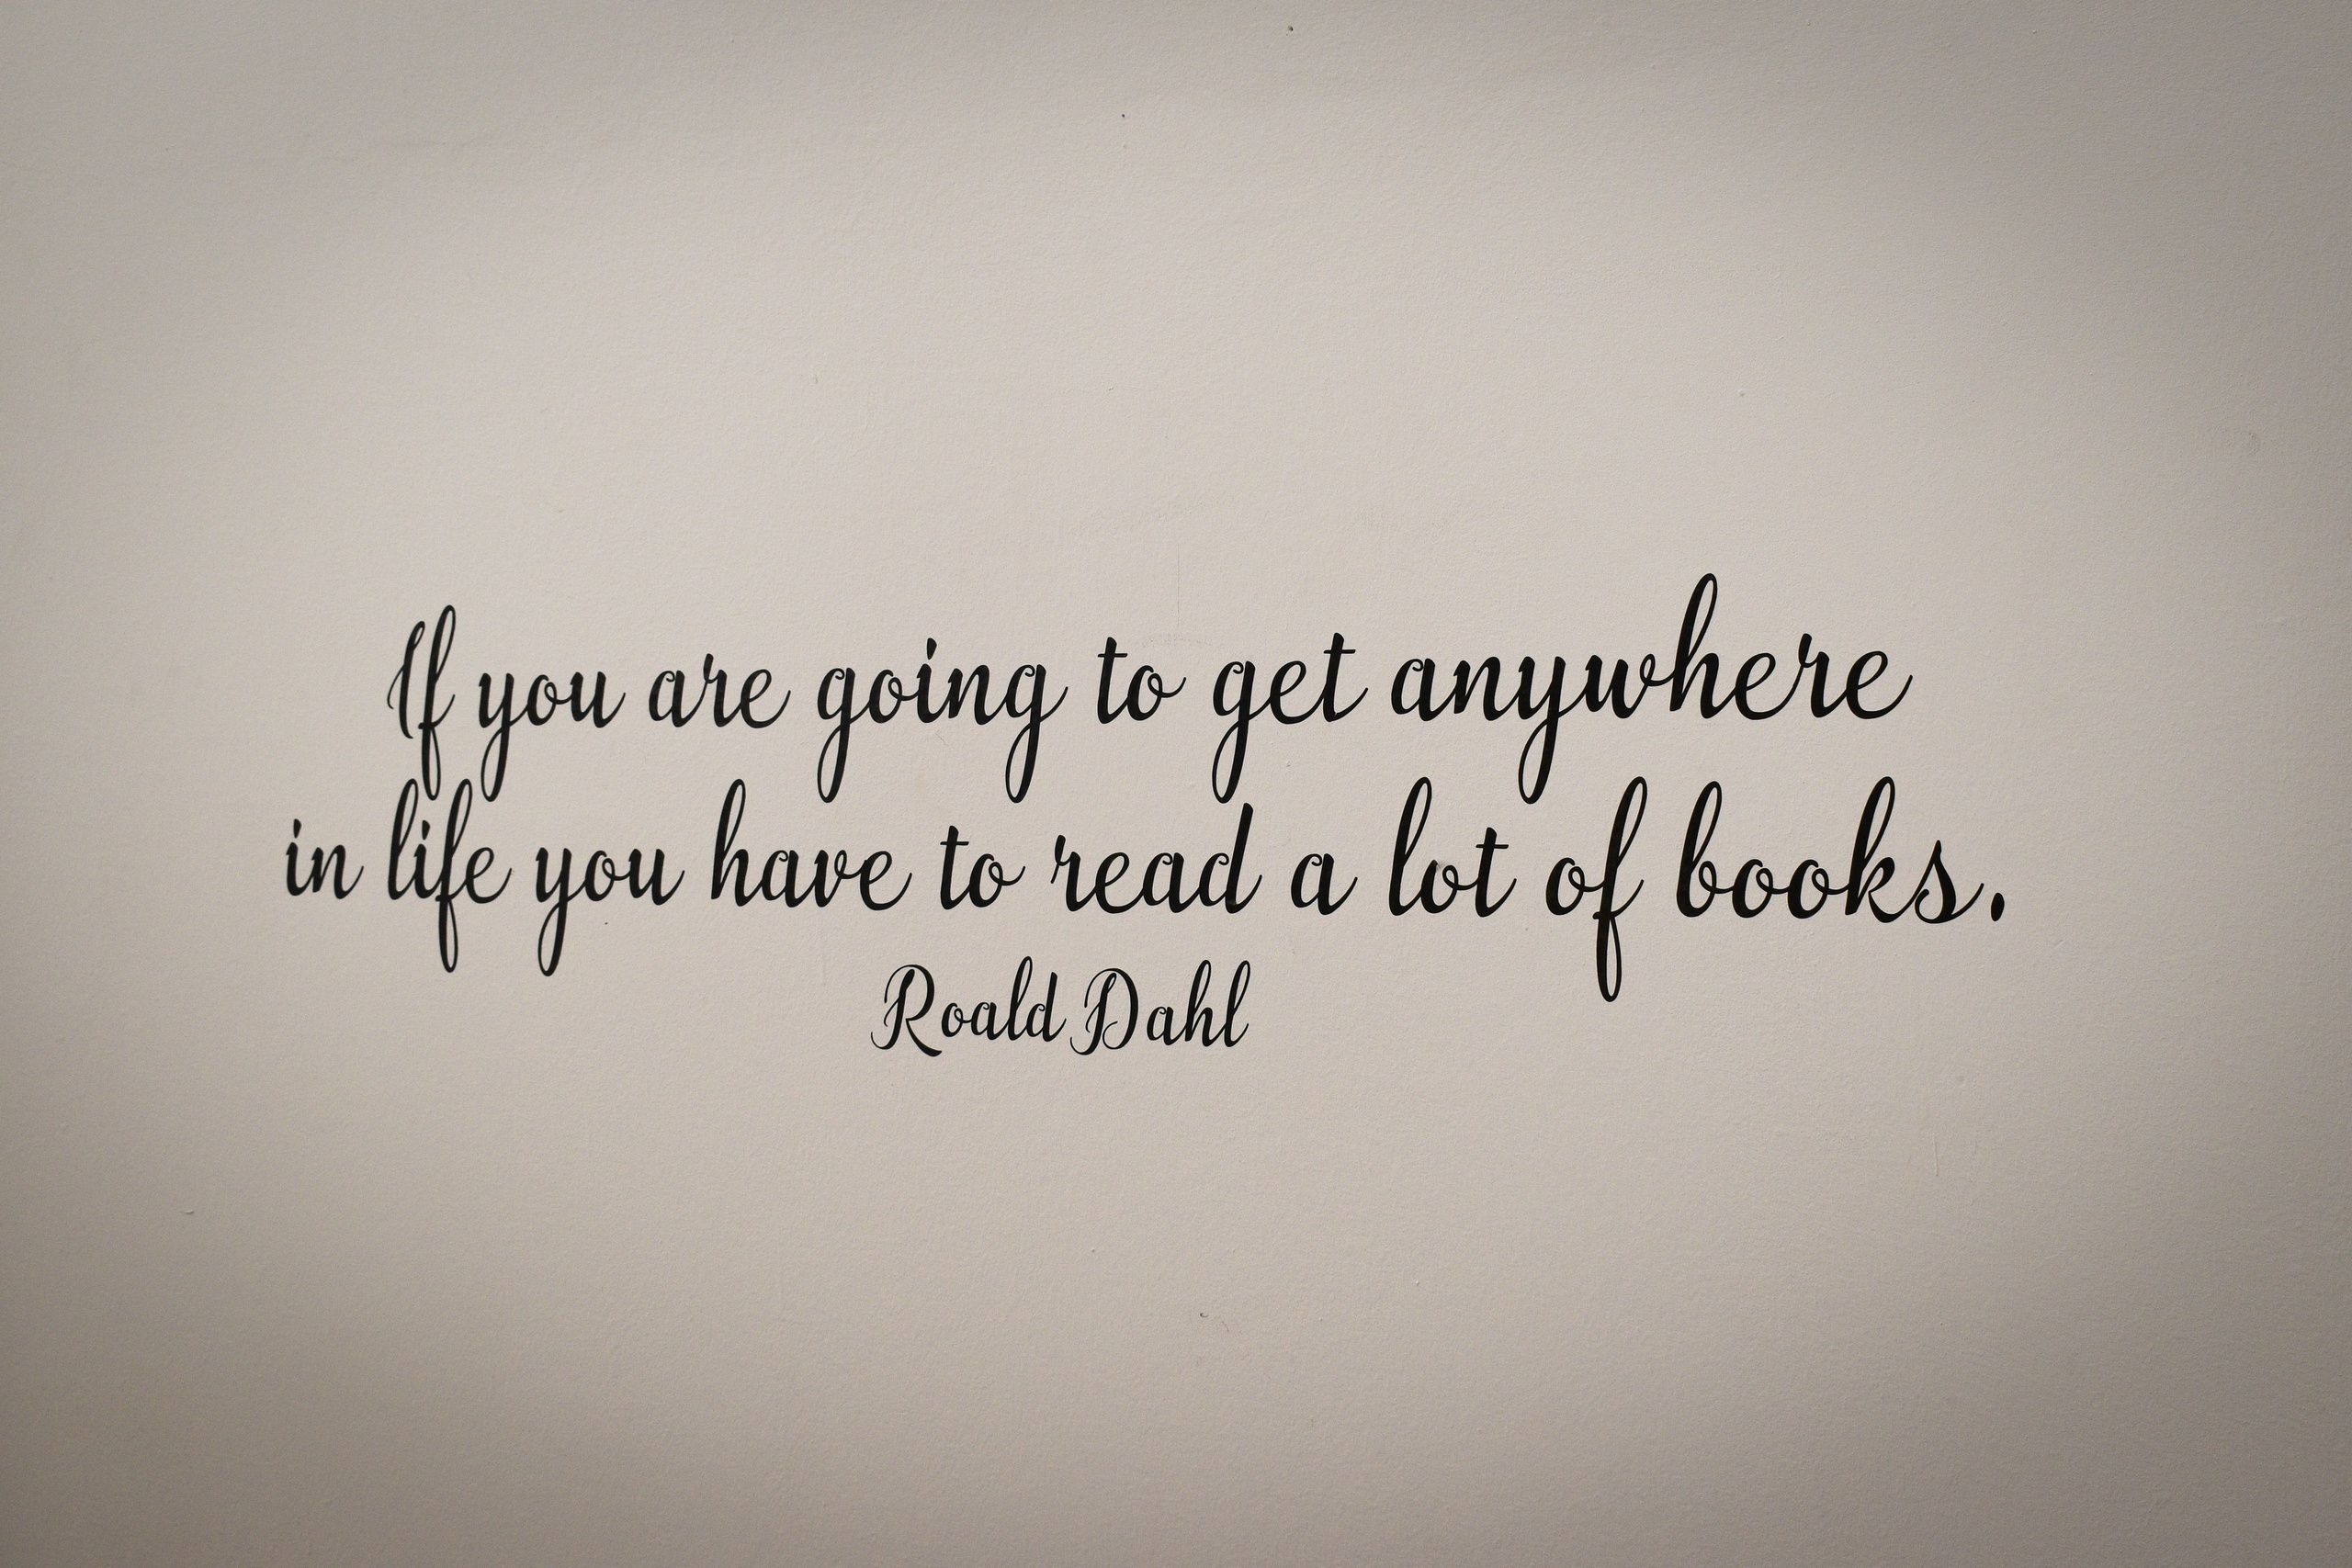 If you are going to get anywhere
in life you have to read a lot of books.
Roald Dahl